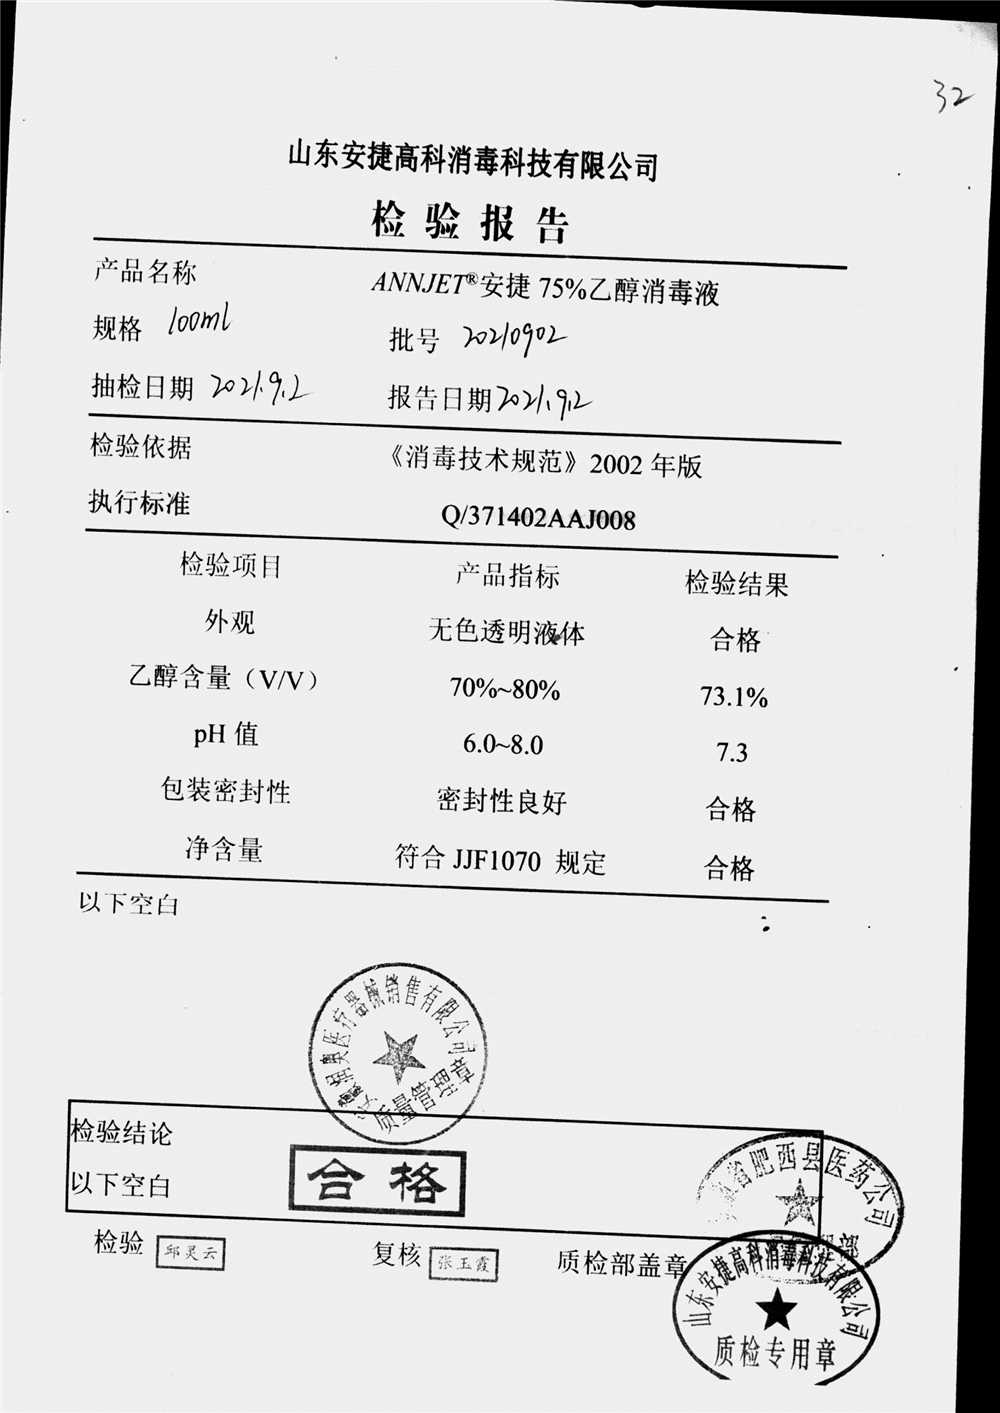 32
山东安捷高科消毒科技有限公司
检验报告
产品名称 ANNJET®安捷 75%乙醇消毒液
规格 100ml 批号 20210902
抽检日期 2021.9.2 报告日期 2021.9.2
检验依据 《消毒技术规范》2002 年版
执行标准 Q/371402AAJ008
检验项目 产品指标 检验结果
外观 无色透明液体 合格
乙醇含量（V/V） 70%~80% 73.1%
pH 值 6.0~8.0 7.3
包装密封性 密封性良好 合格
净含量 符合 JJF1070 规定 合格
以下空白
奥医疗器械销售有限公司
质量管理章
检验结论
合格
以下空白
省肥西县医药公司
部
检验 邱灵云 复核 张玉霞 质检部盖章
山东安捷高科消毒科技有限公司
质检专用章